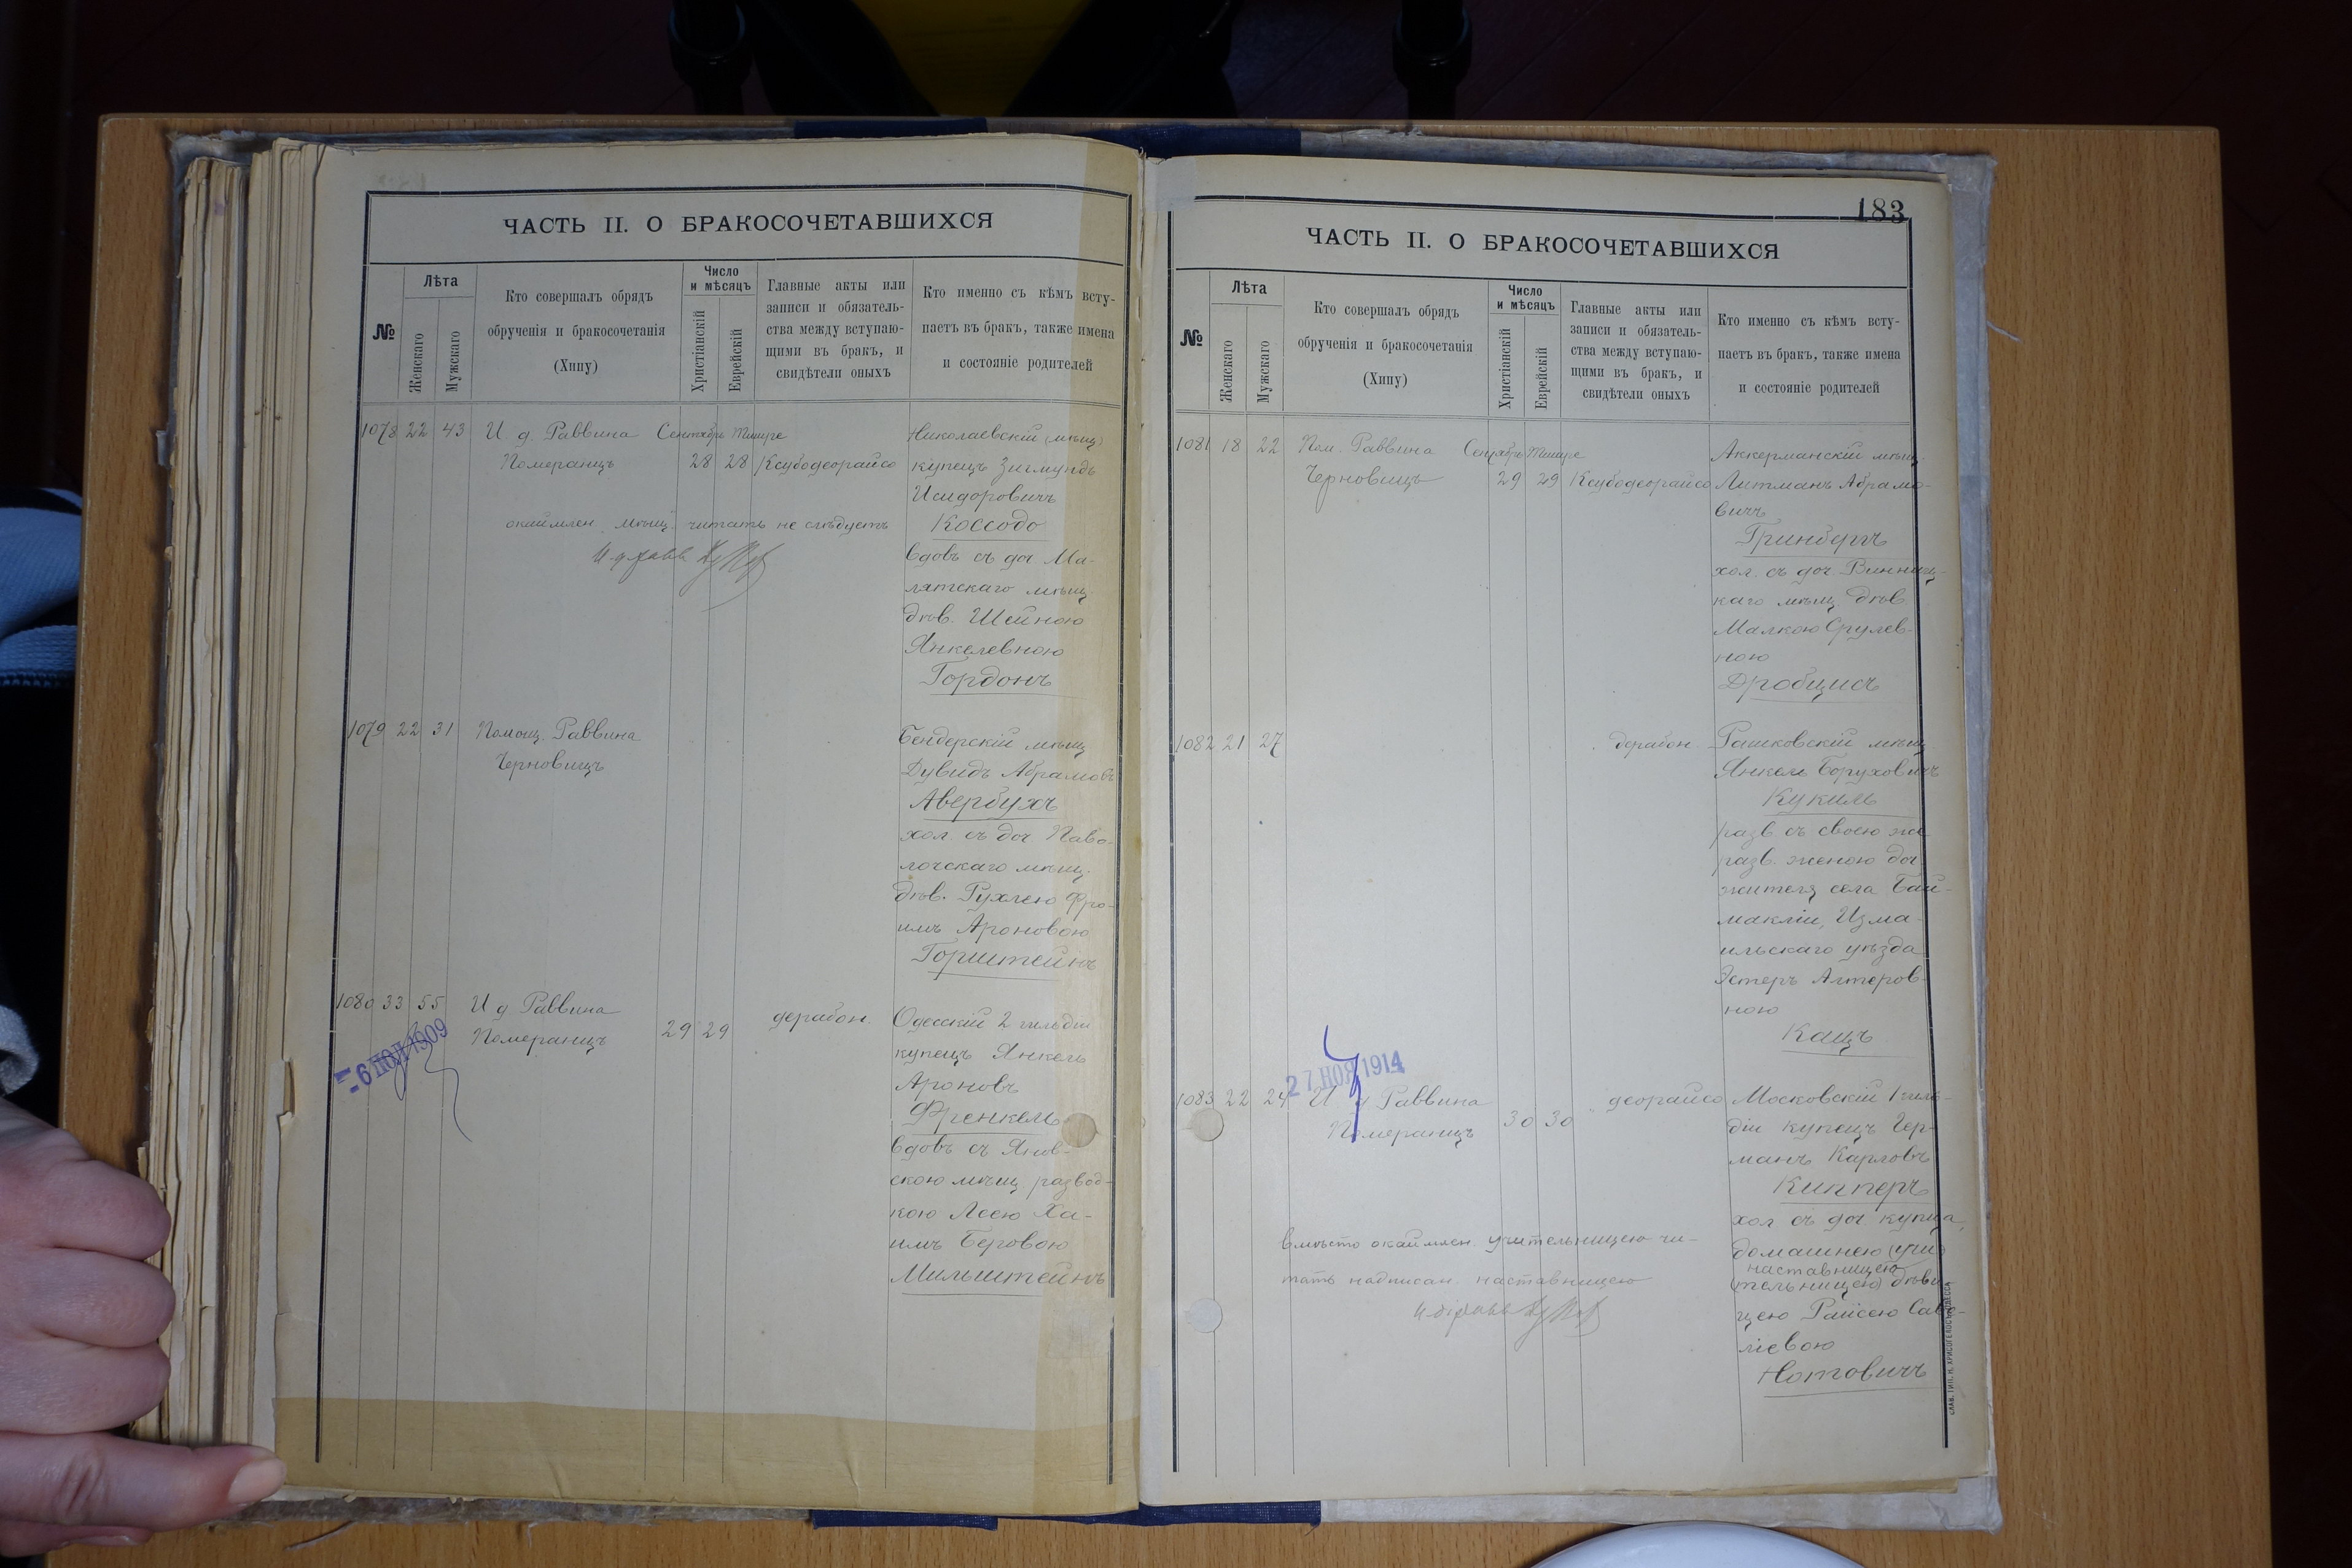 ЧАСТЬ II. О БРАКОСОЧЕТАВШИХСЯ
№
Лѣта
Женскаго
Мужскаго
Кто совершалъ обрядъ
обрученія и бракосочетанія
(Хипу)
Число
и мѣсяцъ
Христіанскій
Еврейскій
Главные акты или
записи и обязатель-
ства между вступаю-
щими въ бракъ, и
свидѣтели оныхъ
Кто именно съ кѣмъ всту-
паетъ въ бракъ, также имена
и состояніе родителей
1078 22 43 И. д. Раввина Сентябрь Тишре
Померанцъ 28 28 Ксубодеорайсо
окаймлен. мѣщ. читать не слѣдуетъ
Николаевскій (мѣщ)
купецъ Зигмундъ
Исидоровичъ
Коссодо
вдовъ съ доч Ма-
лятскаго мѣщ.
дѣв. Шейною
Янкелевною
Гордонъ
1079 22 31 Помощ. Раввина
Черновицъ
Бендерскій мѣщ
Дувидъ Абрамовъ
Авербухъ
хол. съ доч Паво-
лочскаго мѣщ.
дѣв. Рухлею Фро-
имъ Ароновою
Горштейнъ
1080 33 55 И д. Раввина
Померанцъ 29 29 дерабон.
-6 НОЯ 1909
Одесскій 2 гильдіи
купецъ Янкель
Ароновъ
Френкель
вдовъ съ Янов-
скою мѣщ. развод-
кою Леею Ха-
имъ Беровою
Мильштейнъ
183
ЧАСТЬ II. О БРАКОСОЧЕТАВШИХСЯ
№
Лѣта
Женскаго
Мужскаго
Кто совершалъ обрядъ
обрученія и бракосочетанія
(Хипу)
Число
и мѣсяцъ
Христіанскій
Еврейскій
Главные акты или
записи и обязатель-
ства между вступаю-
щими въ бракъ, и
свидѣтели оныхъ
Кто именно съ кѣмъ всту-
паетъ въ бракъ, также имена
и состояніе родителей
1081 18 22 Пом. Раввина Сентябрь Тишре
Черновицъ 29 29 Ксубодеорайсо
Аккерманскій мѣщ.
Литманъ Абрамо-
вичъ
Гринбергъ
хол. съ доч. Винниц-
каго мѣщ. дѣв.
Малкою Срулев-
ною
Дробщисъ
1082 21 27 дерабон.
Рашковскій мѣщ.
Янкель Боруховичъ
Кукиль
разв съ своею же
разв. женою доч
жителя села Бай-
макліи, Изма-
ильскаго уѣзда
Эстеръ Алтеров-
ною
Кацъ
27 НОЯ 1914
1083 22 24 И д Раввина
Померанцъ 30 30 " деорайсо
Московскій 1 гиль-
діи купецъ Гер-
манъ Карловъ
Кипперъ
хол съ доч. купца,
домашнею (учи)
наставницею
(тельницею) дѣви-
цею Раисею Саве-
ліевою
Нотовичъ
вмѣсто окаймлен. учительницею чи-
тать надписан. наставницею
СЛАВ. ТИП. Н. ХРИСОГЕЛОСЪ, ОДЕССА